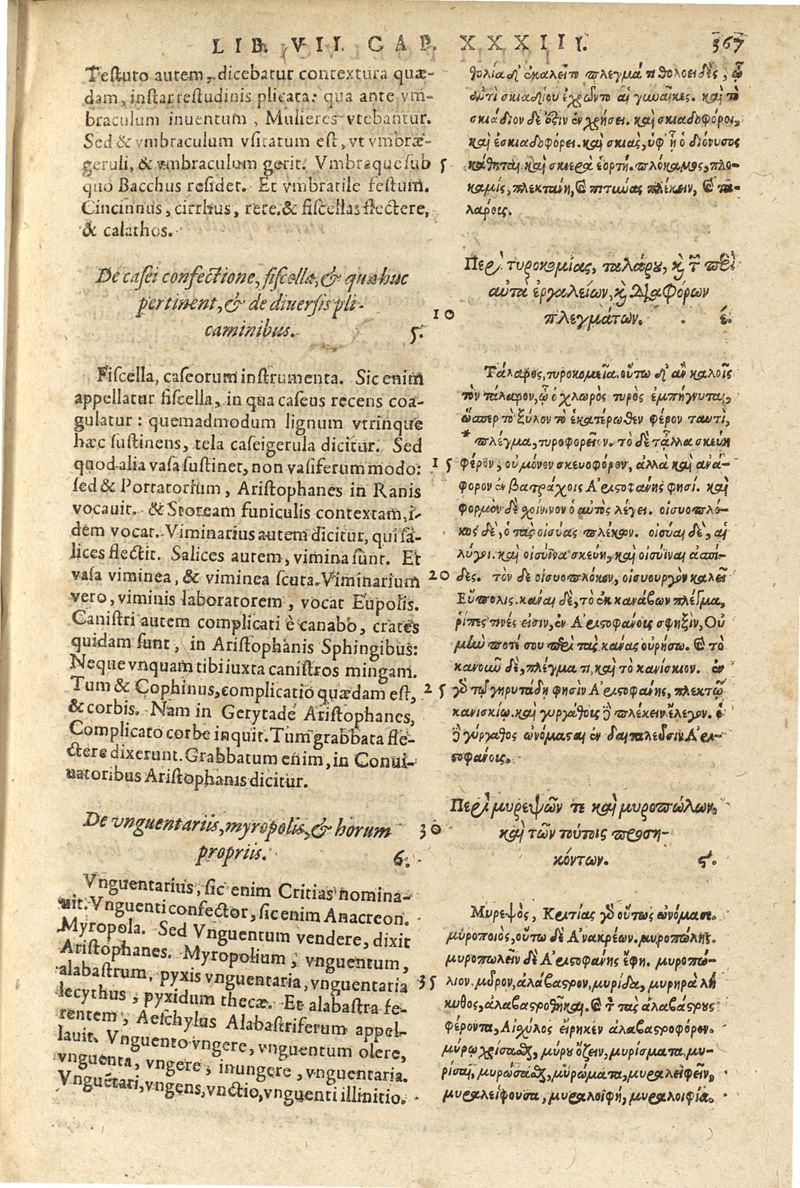 LIB. VII. CAP. XXXIII. 367
Testuto autem, dicebatur contextura quæ-
dam, instar restudinis plicata: qua ante vm-
braculum inuentum, Mulieres vtebantur.
Sed & vmbraculum vsitatum est, vt vmbræ-
geruli, & vmbraculum gerit. Vmbraque sub
quo Bacchus residet. Et vmbratile festum.
Cincinnus, cirrhus, rete. & fiscellas flectere,
& calathos.
De casei confectione, fiscella, & qua huc
pertinent, & de diuersis pli-
caminibus. 5.
Fiscella, caseorum instrumenta. Sic enim
appellatur fiscella, in qua caseus recens coa-
gulatur: quemadmodum lignum vtrinque
hæc sustinens, tela caseigerula dicitur. Sed
quod alia vasa sustinet, non vasiferum modo:
sed & Portatorium, Aristophanes in Ranis
vocauit. & Stoream funiculis contextam, i-
dem vocat. Viminarius autem dicitur, qui sa-
lices flectit. Salices autem, vimina sunt. Et
vasa viminea, & viminea scuta. Viminarium
vero, viminis laboratorem, vocat Eupolis.
Canistri autem complicati è canabo, crates
quidam sunt, in Aristophanis Sphingibus:
Neque vnquam tibi iuxta canistros mingam.
Tum & Cophinus, complicatio quædam est,
& corbis. Nam in Gerytade Aristophanes,
Complicato corbe inquit. Tum grabbata fle-
ctere dixerunt. Grabbatum enim, in Conui-
uatoribus Aristophanis dicitur.
De vnguentariis, myropolis, & horum
propriis. 6.
Vnguentarius, sic enim Critias nomina-
uit. Vnguenti confector, sic enim Anacreon.
Myropola. Sed Vnguentum vendere, dixit
Aristophanes. Myropolium, vnguentum,
alabastrum, pyxis vnguentaria, vnguentaria
lecythus, pyxidum thecæ. Et alabastra fe-
rentem, Aeschylus Alabastriferum appel-
lauit. Vnguento vngere, vnguentum olere,
vnguenta, vngere, inungere, vnguentaria.
Vnguētari, vngens, vnctio, vnguenti illinitio.
5
10
15
20
25
30
35
θολία δ' ἐκαλεῖτο πλέγμά τι θολοειδὲς, ᾧ
ἀντὶ σκιαδίου ἐχρῶντο αἱ γυναῖκες. καὶ τὸ
σκιάδιον δέ ἐστιν ἐν χρήσει. καὶ σκιαδοφόροι,
καὶ ἐσκιαδοφόρει. καὶ σκιὰς, ὑφ' ᾗ ὁ διόνυσος
κάθηται. καὶ σκιερὰ ἑορτή. πλόκαμος, πλο-
καμὶς, πλεκτάνη, καὶ πιτύνας πλέκειν, καὶ τα-
λάροις.
Περὶ τυροκομίας, ταλάρου, καὶ τῶν περὶ
αὐτὰ ἐργαλείων, καὶ διαφόρων
πλεγμάτων. έ.
Τάλαρος, τυροκομεῖα. οὕτω δ' ἂν καλοῖς
τὸν τάλαρον, ᾧ ὁ χλωρὸς τυρὸς ἐμπήγνυται,
ὥσπερ τὸ ξύλον τὸ ἑκατέρωθεν φέρον ταυτὶ,
* πλέγμα, τυροφορεῖον. τὸ δὲ τἆλλα σκεύη
φέρον, οὐ μόνον σκευοφόρον, ἀλλὰ καὶ ἀνά-
φορον ἐν βατράχοις Ἀριστοφάνης φησί. καὶ
φορμὸν δὲ χοίνινον ὁ αὐτὸς λέγει. οἰσυοπλό-
κος δὲ, ὁ τὰς οἰσύας πλέκων. οἰσύαι δὲ, αἱ
λύγοι. καὶ οἰσύϊνα σκεύη, καὶ οἰσύϊναι ἀσπί-
δες. τὸν δὲ οἰσυοπλόκον, οἰσυουργὸν καλεῖ
Εὔπολις. κάναι δὲ, τὸ ἐκ κανάβων πλέγμα,
ῥίπές τινές εἰσιν, ἐν Ἀριστοφάνοις σφηξὶν, Οὐ
μὴν ποτέ σου περὶ τὰς κάνας οὐρήσω. καὶ τὸ
κανοῦν δὲ, πλέγμα τι, καὶ τὸ κανίσκιον. ἐν
γὸ τῷ γηρυτάδη φησὶν Ἀριστοφάνης, πλεκτῷ
κανισκίῳ. καὶ γυργάθοις ᾗ πλέκειν ἔλεγον. ὁ
ᾗ γύργαθος ὠνόμασαι ἐν δαιταλεῦσιν Ἀρι-
στοφάνοις.
Περὶ μυρεψῶν τε καὶ μυροπώλων.
καὶ τῶν τούτοις προσή-
κόντων. ϛ.
Μυρεψὸς, Κριτίας γὸ οὕτως ὠνόμασε.
μυροποιὸς, οὕτω δὲ Ἀνακρέων. μυροπώλης.
μυροπωλεῖν δὲ Ἀριστοφάνης ἔφη. μυροπώ-
λιον. μύρον, ἀλάβαστρον, μυρίδα, μυρηρὰ λή
κυθος, ἀλαβαστροθήκαι. καὶ τὰς ἀλαβάστρους
φέροντα, Αἰσχύλος εἴρηκεν ἀλαβαστροφόρον.
μύρῳ χρίσασθαι, μύρου ὄζειν, μυρίσματα, μυ-
ρίσαι, μυρώσασθαι, μυρώματα, μυραλειφεῖν,
μυραλείφουσα, μυραλοιφή, μυραλοιφία.